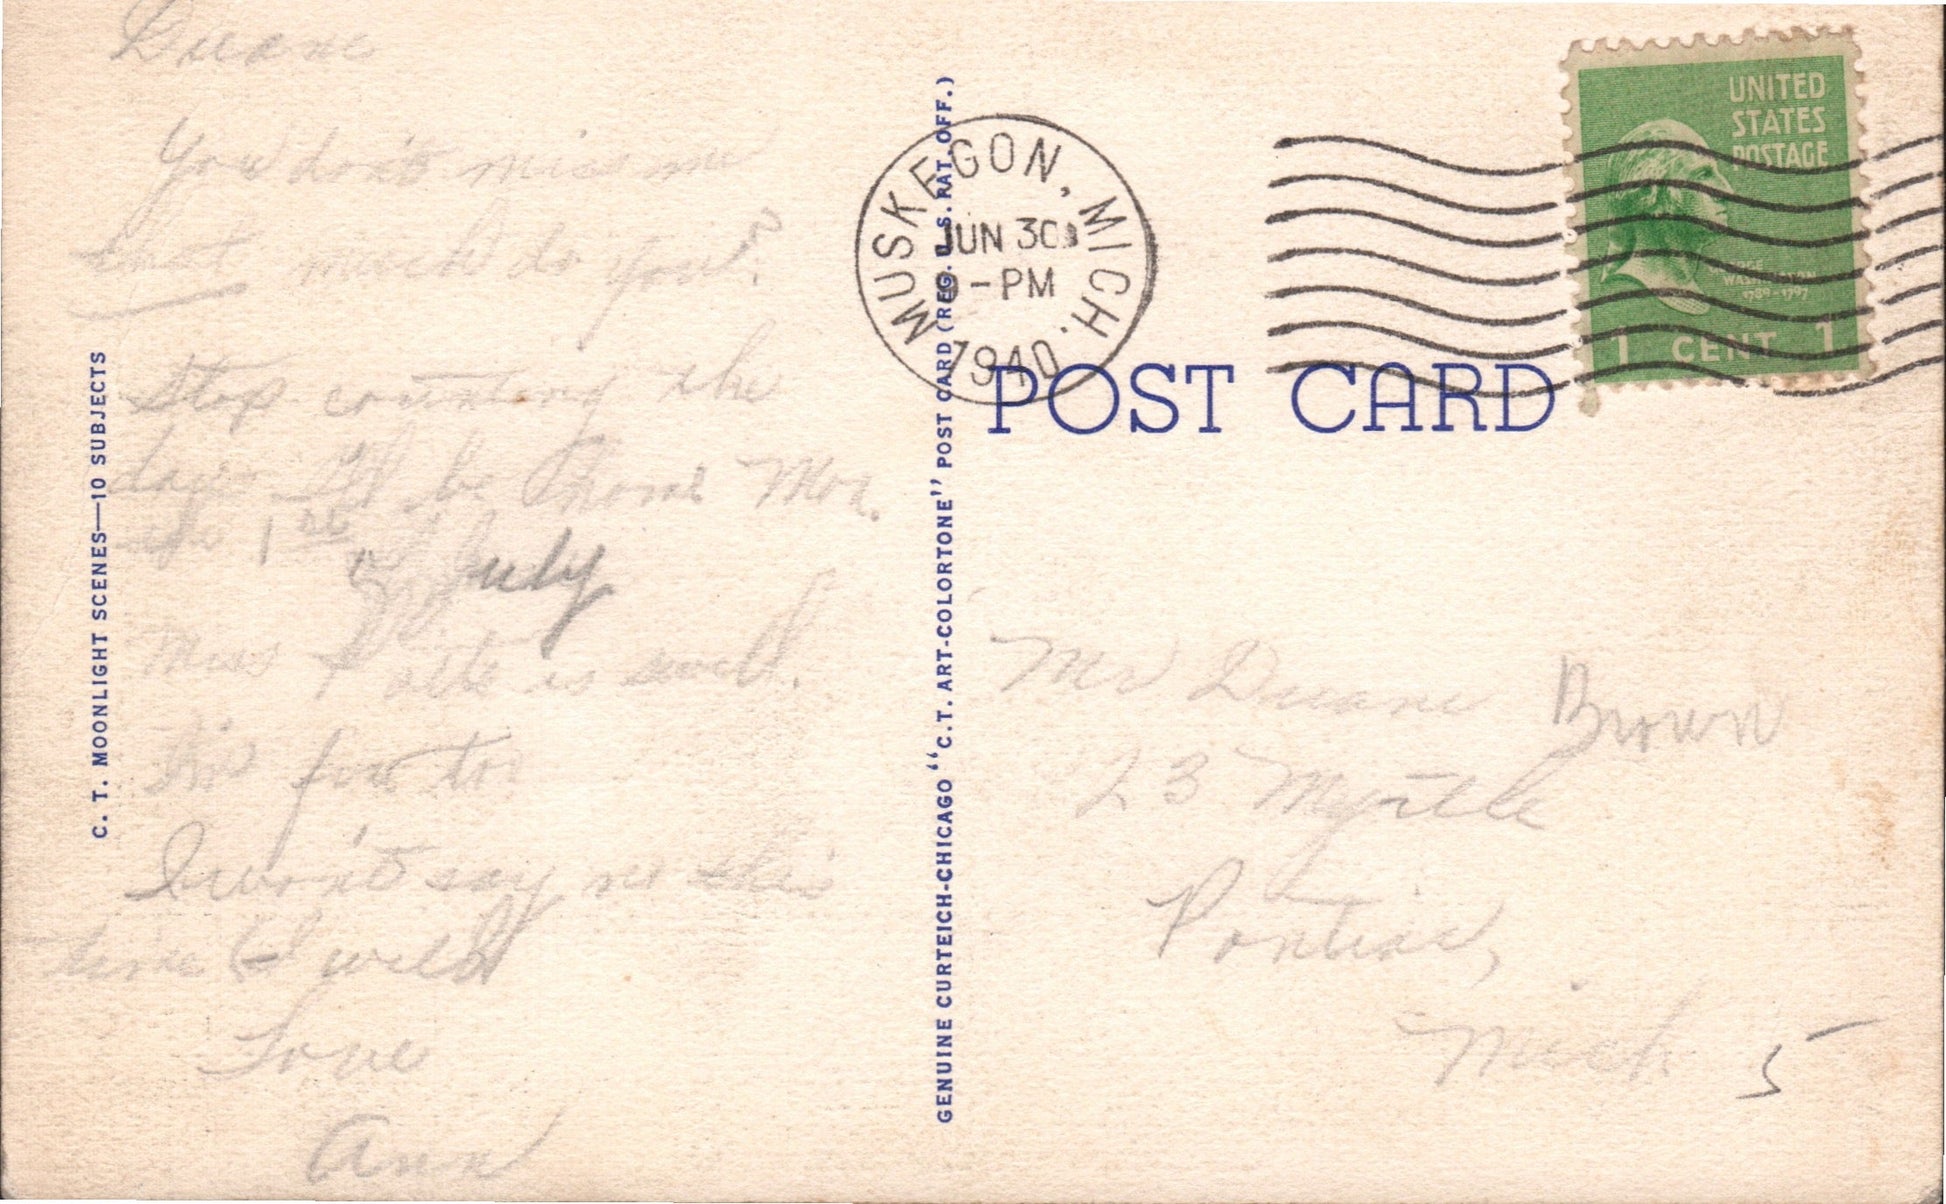 Duane
You don't miss me
that much do you?
Stop counting the
days I'll be home Mon.
the 1st
of July
Miss is swell.
I'm for
I won't say no this
time & I will
Love
Ann
C. T. MOONLIGHT SCENES—10 SUBJECTS
GENUINE CURTEICH-CHICAGO "C. T. ART-COLORTONE" POST CARD (REG. U.S. PAT. OFF.)
MUSKEGON, MICH.
JUN 30
-PM
1940
UNITED
STATES
POSTAGE
GEORGE
WASHINGTON
1789-1797
1 CENT 1
POST CARD
Mr Duane Brown
23 Myrtle
Pontiac,
Mich
5